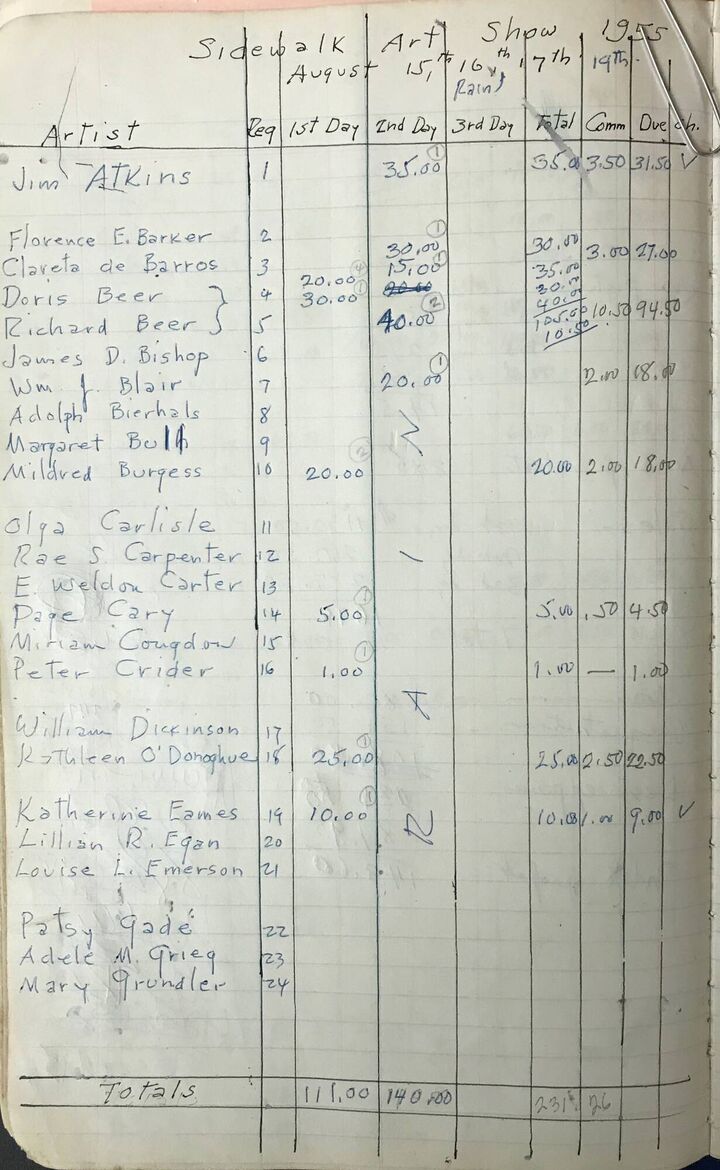 Sidewalk Art Show 1955
August 15, th 16 th, 17 th 19th
Rain
Artist Req 1st Day 2nd Day 3rd Day Total Comm Due ch.
Jim Atkins 1 35.00 ① 35.00 3.50 31.50 ✓
Florence E. Barker 2 30.00 ① 30.00 3.00 27.00
Claveta de Barros 3 15.00 ① 35.00
Doris Beer 4 20.00 30.00 ① 20.00 30.00 40.00
Richard Beer 5 40.00 ② 105.00 10.50 94.50
10.50
James D. Bishop 6
Wm J. Blair 7 20.00 ① 2.00 18.00
Adolph Bierhals 8
Margaret 9
Mildred Burgess 10 20.00 ② 20.00 2.00 18.00
Olga Carlisle 11
Rae S. Carpenter 12
E Weldon Carter 13
Page Cary 14 5.00 ① 5.00 .50 4.50
Miriam Congdon 15
Peter Crider 16 1.00 ① 1.00 — 1.00
William Dickinson 17
Kathleen O'Donoghue 18 25.00 ① 25.00 2.50 22.50
Katherine Eames 19 10.00 ① 10.00 1.00 9.00 ✓
Lillian R. Egan 20
Louise L. Emerson 21
Patsy Gade 22
Adele M. Grieg 23
Mary Grundler 24
RAIN
Totals 111.00 140.00 231 26